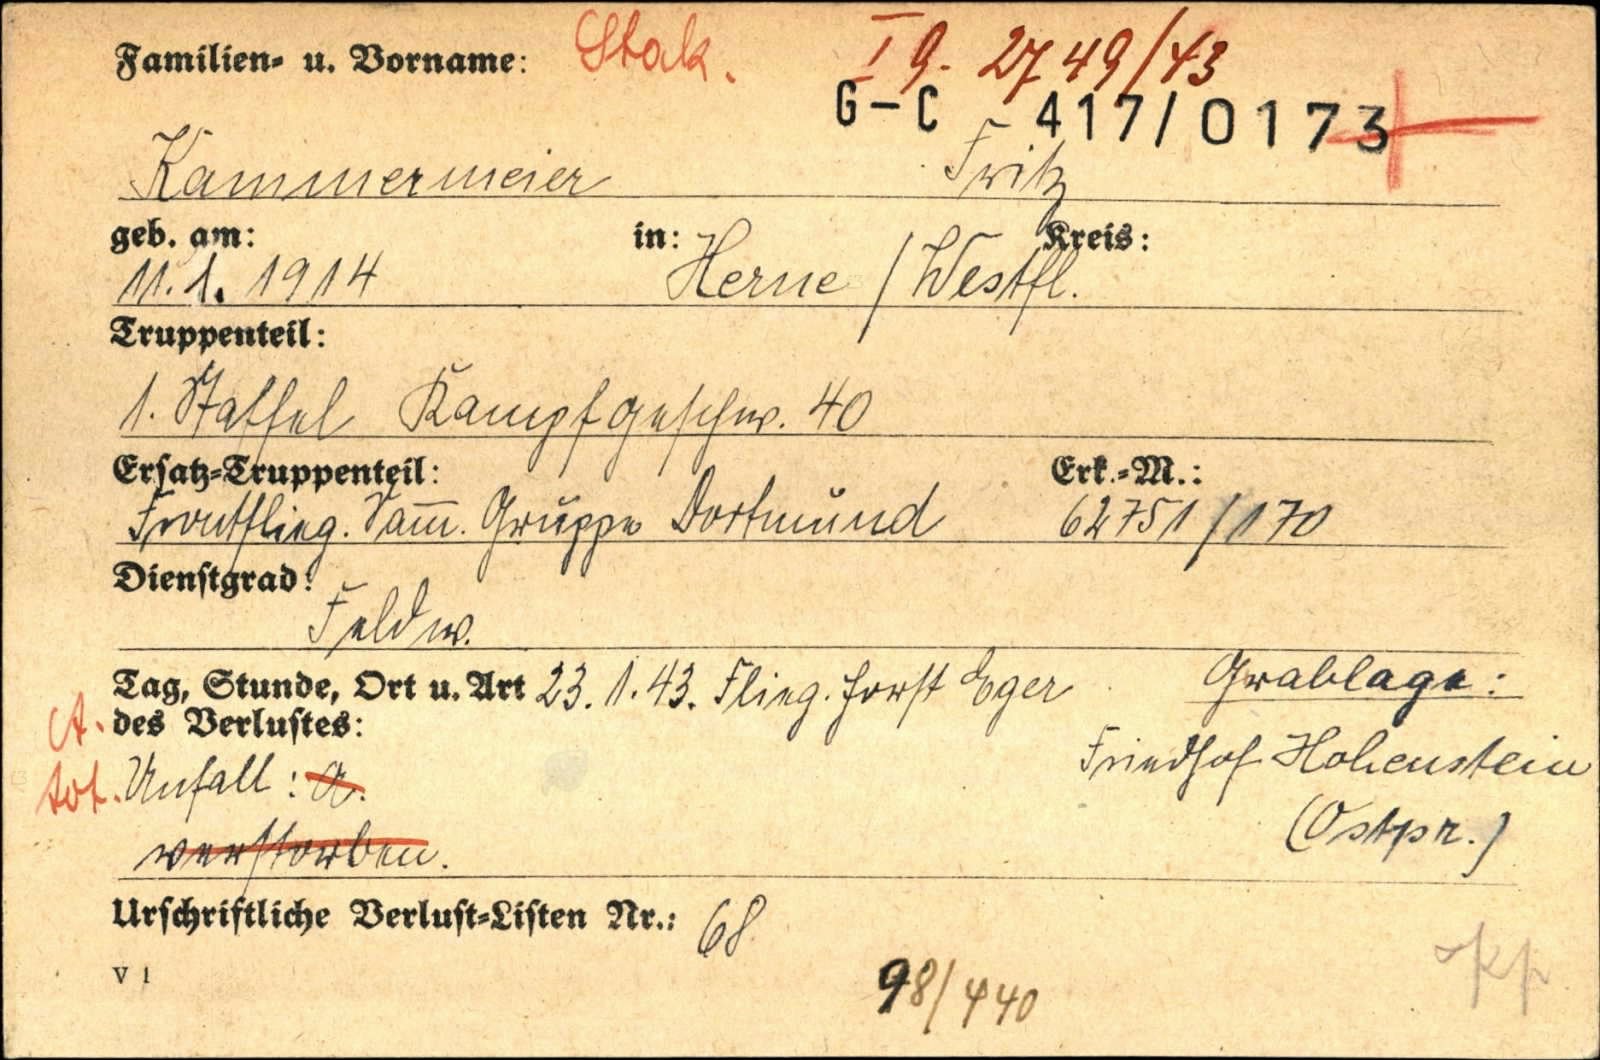 Familien- u. Vorname: Stak. I 9. 2749/43
G-C 417/0173
Kammermeier Fritz
geb. am: in: Kreis:
11. 1. 1914 Herne / Westfl.
Truppenteil:
1. Staffel Kampfgeschw. 40
Ersatz-Truppenteil: Erk.-M.:
Frontflieg. Samm. Gruppe Dortmund 62751/170
Dienstgrad:
Feldw.
Tag, Stunde, Ort u. Art 23. 1. 43. Flieg. Horst Eger Grablage:
des Verlustes:
Friedhof Hohenstein
tot. Unfall: a.
(Ostpr.)
verstorben.
Urschriftliche Verlust-Listen Nr.: 68
V 1
98/440